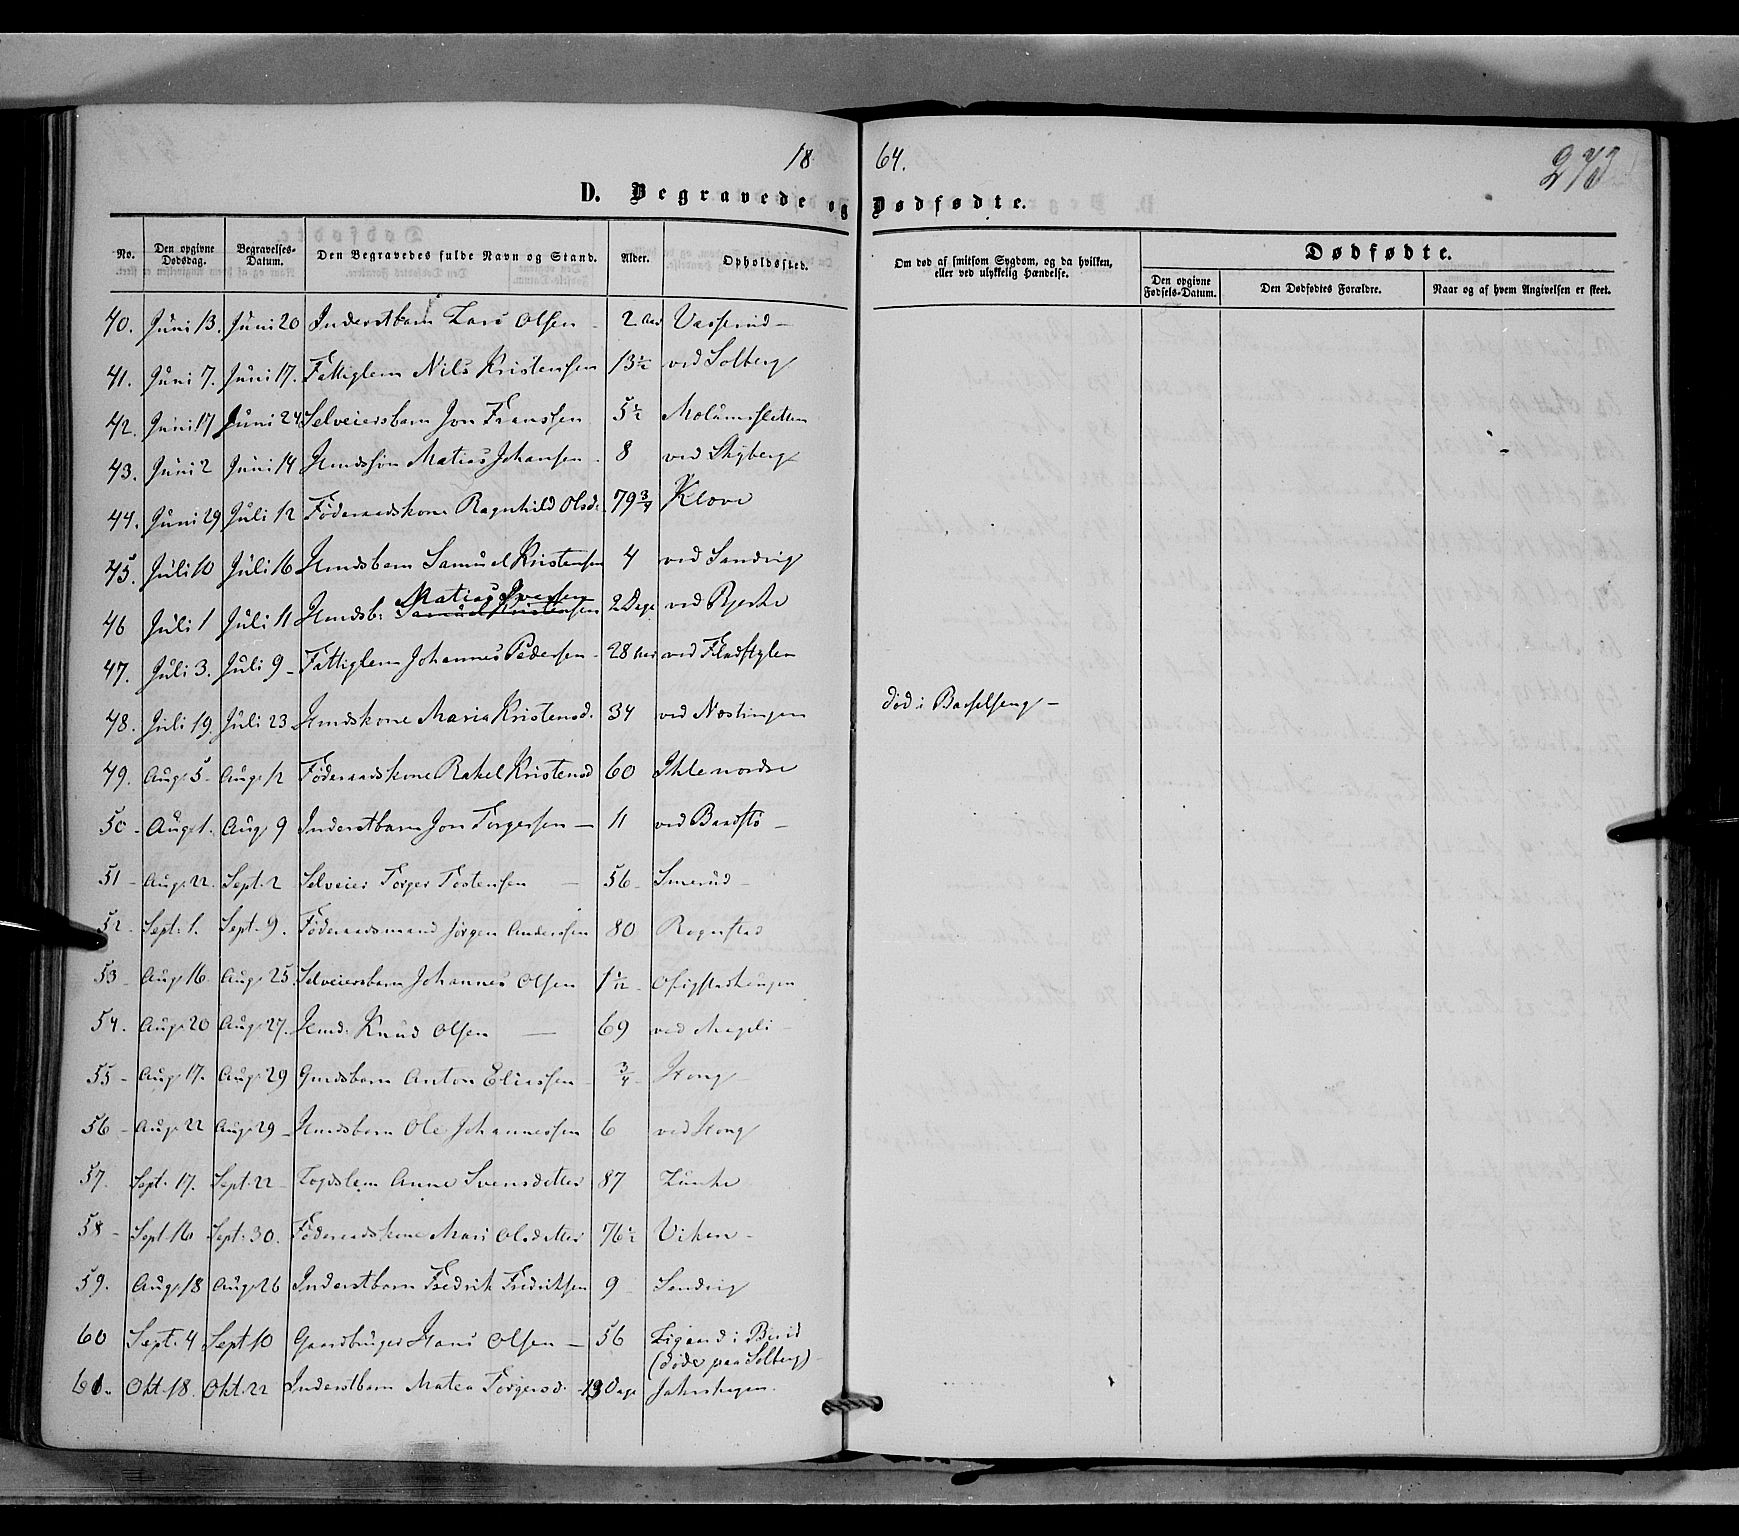 18 64.
273
D. Begravede og Dødfødte.
No. Den opgivne Dødsdag. Begravelses-Datum. Den Begravedes fulde Navn og Stand. Alder. Opholdssted. Om død af smitsom Sygdom, og da hvilken, eller ved ulykkelig Hændelse. Dødfødte.
Den opgivne Fødsels-Datum. Den Dødfødtes Forældre. Naar og af hvem Angivelsen er skeet.
40. Juni 13. Juni 20 Inderstbarn Lars Olsen - 2 Aar
41. Juni 7. Juni 17. Fattiglem Nils Kristensen 13½ ved Solberg
42. Juni 17 Juni 24 Selveiersbarn Jon Franssen 5½
43. Juni 2 Juni 14 Matias Johansen - 8 ved Skyberg
44. Juni 29 Juli 12 Føderaadskone Ragnhild Olsd. 79¾ Klove
45. Juli 10 Juli 16 Husmdsbarn Samuel Kristensen 4 ved Sandvig
Matias Iversen
46 Juli 1 Juli 11 Husmdsb: Samuel Kristensen 2 Dage ved Bjerke
47. Juli 3. Juli 9 - Fattiglem Johannes Pedersen - 28 Aar ved
48. Juli 19. Juli 23 Husmdskone Maria Kristensd. 34 ved død i Barselseng -
49. Aug: 5 - Aug: 12 Føderaadskone Rakel Kristensd 60 Ihle nordre
50 - Aug: 1. Aug: 9 Inderstbarn Jon Torgersen - 11 ved
51 - Aug: 22. Sept. 2 Selveier Torger Tostensen - 56 - Smerud -
52 - Sept: 1. Sept. 9. Føderaadsmand Jörgen Anderssen 80 Rognstad
53 - Aug: 16 Aug: 25 Selveiersbarn Johannes Olsen 1½ -
54. Aug: 20 Aug: 27. Husmd: Knud Olsen - 69 ved Mageli -
55 - Aug: 17. Aug: 29 Gmdsbarn Anton Eliassen - ¾ - Hong
56 - Aug: 22 Aug: 29 - Husmdsbarn Ole Johannessen 6 ved Hong
57. Sept. 17. Sept. 22 - Lægdslem Anne Svensdatter 87 Lunke
58 - Sept. 16 Sept: 30. Føderaadskone Mari Olsdatter 76½ Viken -
59. Aug: 18 Aug: 26 Inderstbarn Fredrik Fredriksen 9 Sandvig
60 Sept. 4 Sept. 10 Gaardbruger Hans Olsen - 56 Ligand i Birid
(døde paa Solberg) -
61. Okt. 18. Okt. 22 Inderstbarn Matea Torgersd. 19 Dage